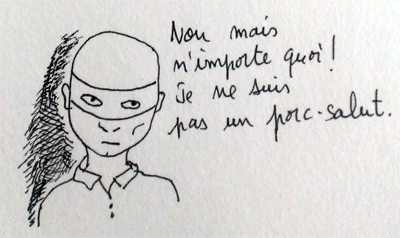 Non mais
n'importe quoi!
Je ne suis
pas un porc-salut.